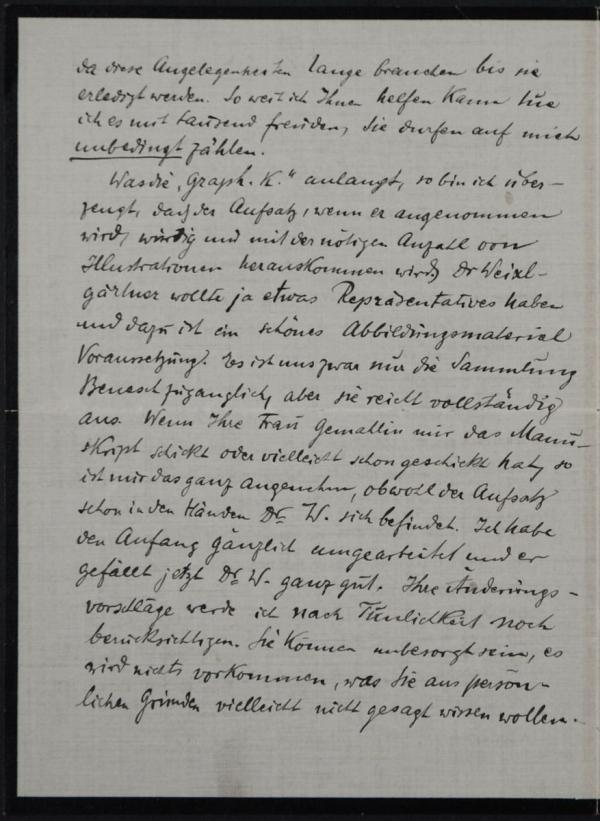 da diese Angelegenheiten lange brauchen bis sie
erledigt werden. So weit ich Ihnen helfen kann tue
ich es mit tausend freuden, Sie durfen auf mich
unbedingt zählen.
Was die „Graph. K." anlangt, so bin ich über-
zeugt, daß der Aufsatz, wenn er angenommen
wird, würdig und mit der nötigen Anzahl von
Illustrationen herauskommen wird. Dr Weixl-
gärtner wollte ja etwas Repräsentatives haben
und dazu ist ein schönes Abbildungsmaterial
Voraussetzung. Es ist uns zwar nur die Sammlung
Benesch zugänglich, aber sie reicht vollständig
aus. Wenn Ihre Frau Gemahlin mir das Manu-
skript schickt oder vielleicht schon geschickt hat, so
ist mir das ganz angenehm, obwohl der Aufsatz
schon in den Händen Dr. W. sich befindet. Ich habe
den Anfang gänzlich umgearbeitet und er
gefällt jetzt Dr. W. ganz gut. Ihre Änderungs-
vorschläge werde ich nach Tunlichkeit noch
berücksichtigen. Sie können unbesorgt sein, es
wird nichts vorkommen, was Sie aus persön-
lichen Gründen vielleicht nicht gesagt wissen wollen.